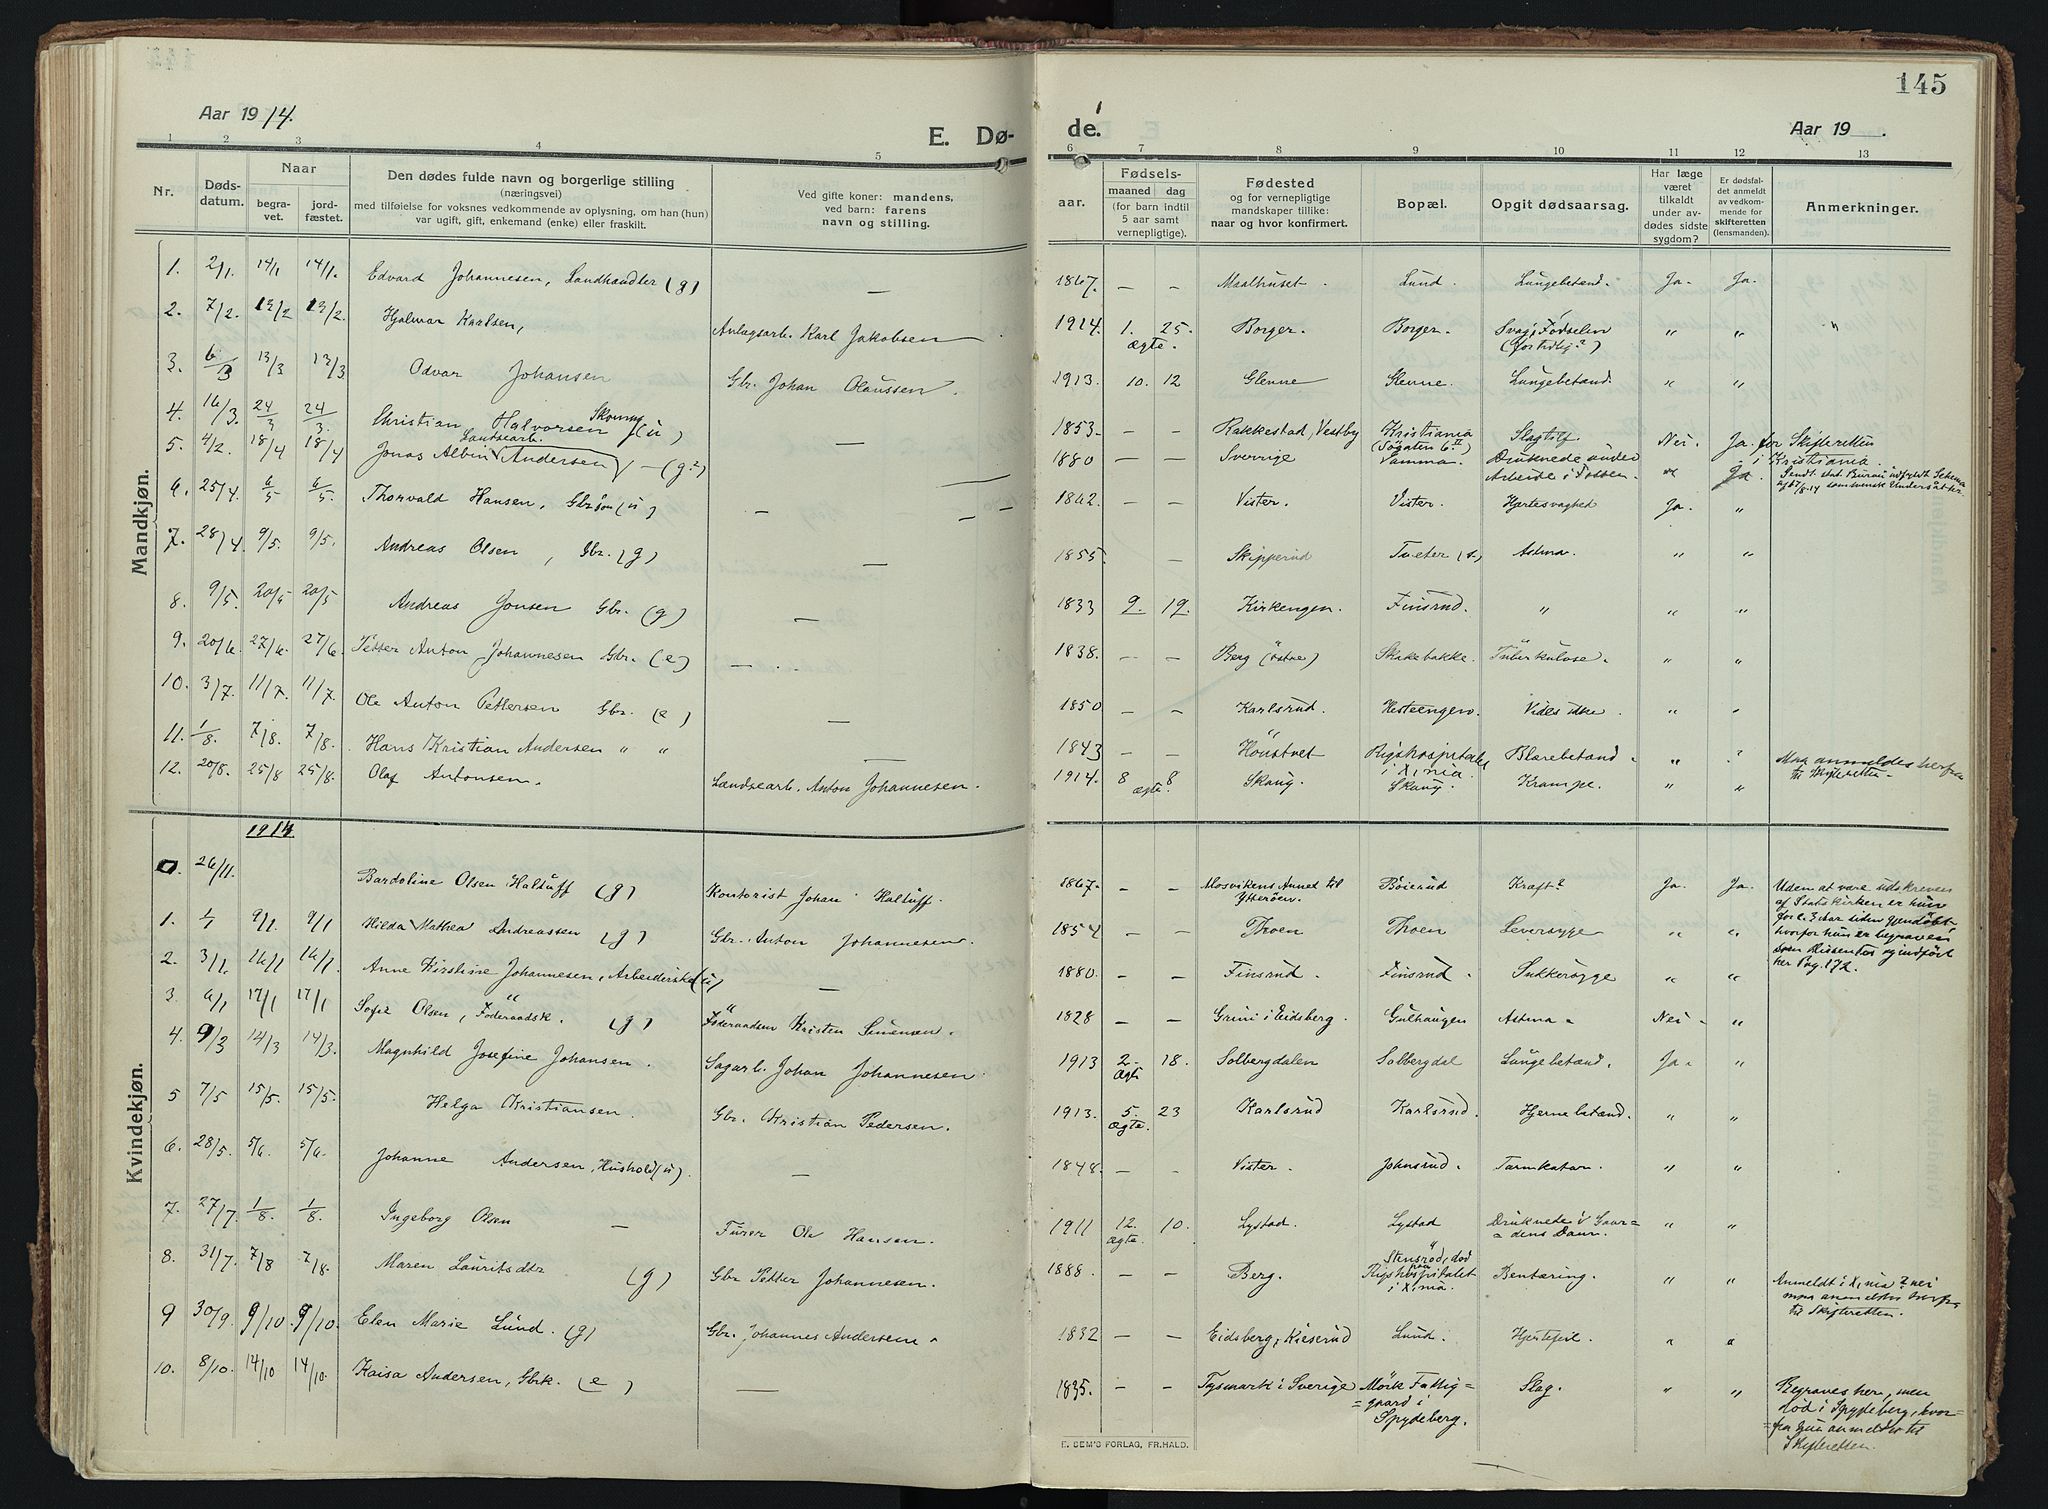 145
Aar 1914.
E. Dø-
de.
Aar 19 .
1 2 3 4 5 6 7 8 9 10 11 12 13
Nr.
Døds-
datum.
Naar
begra-
vet.
jord-
fæstet.
Den dødes fulde navn og borgerlige stilling
(næringsvei)
med tilføielse for voksnes vedkommende av oplysning, om han (hun)
var ugift, gift, enkemand (enke) eller fraskilt.
Ved gifte koner: mandens,
ved barn: farens
navn og stilling.
aar.
Fødsels-
maaned dag
(for barn indtil
5 aar samt
vernepligtige).
Fødested
og for vernepligtige
mandskaper tillike:
naar og hvor konfirmert.
Bopæl.
Opgit dødsaarsag.
Har læge
været
tilkaldt
under av-
dødes sidste
sygdom?
Er dødsfal-
det anmeldt
av vedkom-
mende for
skifteretten
(lensmanden).
Anmerkninger.
Mandkjøn.
1. 2/1. 14/1 14/1. Edvard Johannesen, Landhandler (g) — 1867. — — Maalhuset. Lund. Lungebetænd. Ja. Ja.
2. 7/2. 13/2 13/2. Hjalmar Karlsen, Anlægsarb. Karl Jakobsen. 1914. 1. 25. Borger. Borger. Svag Fødselen " "
ægte.
3. 6/3 13/3 13/3 Odvar Johansen Gbr. Johan Olaussen. 1913. 10. 12 Glenne Glenne. Lungebetænd. " "
4. 16/3. 24/3 24/3. Christian Halvorsen (u) — 1853. — — Rakkestad, Vestby Kristiania Slagtilf. Nei. Ja. for Skifteretten
i Kristiania.
5. 4/2. 18/4 18/4 Jonas Albin Andersen — (g?) 1880 — — Sverrige Vamma. Druknede under
Landsearb.
Arbeide i Fossen. " Ja.
6. 25/4. 6/5 6/5. Thorvald Hansen, Gbrsøn (u) — 1862. — — Vister. Vister. Hjertesvaghed Ja. "
7. 28/4. 9/5. 9/5. Andreas Olsen, Gbr. (g) — 1855. — Skipperud Tveter Astma. " "
8. 9/5. 20/5 20/5 Andreas Jonsen Gbr. (g) — 1833 9. 19. Kirkengen. Finsrud. " " "
9. 20/6. 27/6. 27/6. Petter Anton Johannesen Gbr. (e) — 1838. — — Berg (østre) Skakebakke. Tuberkulose. " "
10. 3/7. 11/7. 11/7. Ole Anton Pettersen Gbr. (e) — 1850 — — Karlsrud. Hesteengen. Vides ikke " "
11. 1/8. 7/8. 7/8. Hans Kristian Andersen " " 1843 — — Rigshospitalet Blærebetænd. " ?
i X.nia.
12. 20/8. 25/8 25/8. Olaf Antonsen. Landsearb. Anton Johannesen. 1914. 8 8. Skaug. Skaug. Krampe. " "
ægte
Kvindekjøn.
1914
0. 26/11. Bardoline Olsen Haltuff (g) Kontorist Johan Haltuff. 1867. — — Mosvikens Annex til Bøierud Kraft? Ja. Ja. Uden at være udskreven
Ytterøen.
af Statskirken er hun
for c. 3 aar siden gjendøbt,
hvorfor hun er begraven
som Dissenter og indført
her Pag. 172.
1. 1/1 9/1. 9/1 Hilda Mathea Andreassen (g) Gbr. Anton Johannesen. 1854 — — Throen Throen Leversyge " "
2. 3/1. 16/1 16/1. Anne Kirstine Johannesen, Arbeiderske (u) — 1880. — — Finsrud. Finsrud. Sukkersyge " "
3. 6/1 17/1 17/1 Sofie Olsen, Føderaadsk. (g) Føderaadsm Kristen Simensen. 1828 — — Grini i Eidsberg. Gulhaugen Astma Nei "
4. 9/3 14/3 14/3. Magnhild Josefine Johansen. Sagarb. Johan Johannesen. 1913 2. 18. Solbergdalen Solbergdal Lungebetænd. Ja "
ægte
5 7/5 15/5. 15/5. Helga Kristiansen. Gbr. Kristian Pedersen. 1913. 5. 23 Karlsrud Karlsrud. Hjernebetænd. " "
ægte.
6. 28/5. 5/6. 5/6. Johanne Andersen, Hushold (u). — 1848. — — Vister. Johnsrud. Tarmkatar. " "
7. 27/7. 1/8. 1/8. Ingeborg Olsen — Ole Hansen. 1911 12. 10. Lystad. Lystad Druknede i Gaar-
ægte.
dens Dam. " "
8. 31/7. 7/8 7/8. Maren Lauritsdtr (g) Gbr Petter Johannesen. 1888. — — Berg. Stensrød, død
paa
Rigshospitalet Bentæring. " "
i X.nia
Anmeldt i X.nia? nei
til Skifteretten.
9 30/9. 9/10 9/10. Elen Marie Lund. (g) Gbr. Johannes Andersen. 1832 — — Eidsberg, Kieserud Lund. Hjertefeil. " "
10. 8/10. 14/10 14/10. Kaisa Andersen, Gbrk. (e) — 1835. — — Tysmark i Sverige Mørk Fattig-
gaard i
Spydeberg. Slag. " "
Begraves her, men
død i Spydeberg, hvor-
fra hun anmeldtes til
Skifteretten.
E. SEM'S FORLAG, FR.HALD.